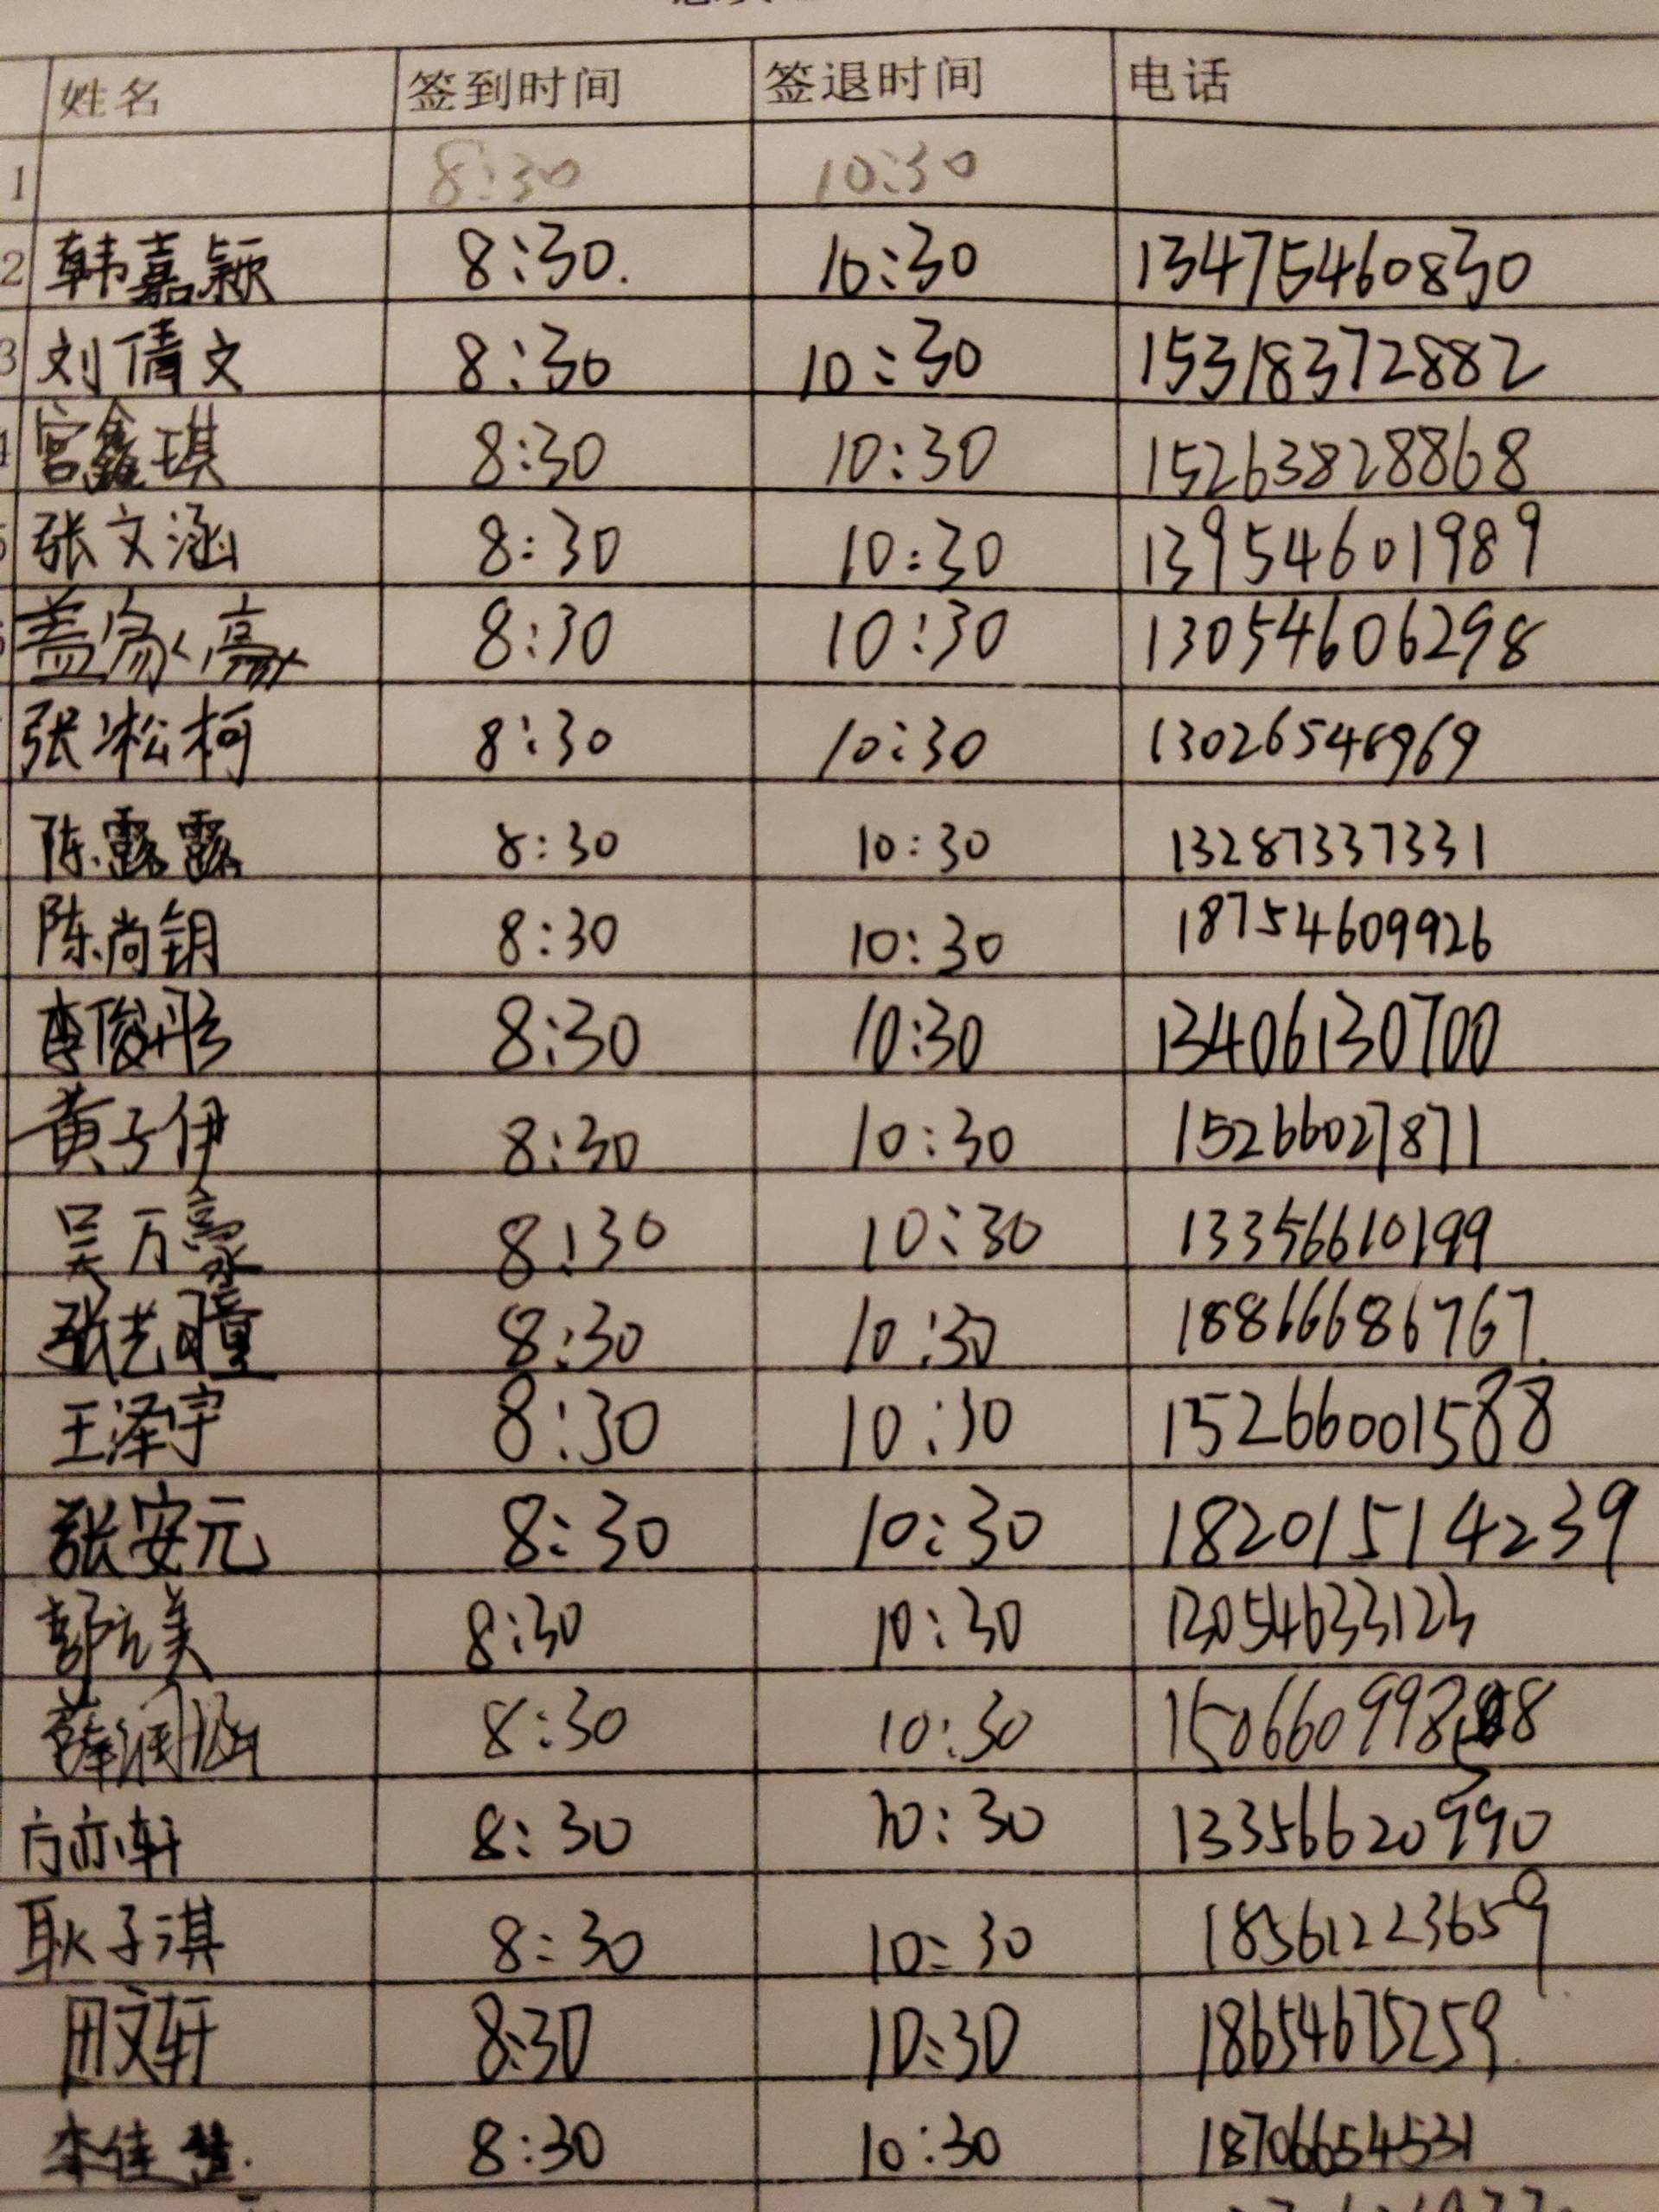 姓名 签到时间 签退时间 电话
1 8:30 10:30
2 韩嘉颖 8:30. 10:30 13475460830
3 刘倩文 8:30 10:30 15318372882
4 宫鑫琪 8:30 10:30 15263828868
张文涵 8:30 10:30 13954601989
盖家豪 8:30 10:30 13054606298
张凇柯 8:30 10:30 13026546969
陈露露 8:30 10:30 13287337331
陈尚钥 8:30 10:30 18754609926
李俊彤 8:30 10:30 13406130700
黄子伊 8:30 10:30 15266027871
吴万豪 8:30 10:30 13356610199
张艺瞳 8:30 10:30 18866686767.
王泽宇 8:30 10:30 15266001588
张安元 8:30 10:30 18201514239
郭立美 8:30 10:30 13054633123
薛润涵 8:30 10:30
方亦轩 8:30 10:30 13356620990
耿子淇 8:30 10:30 18561223659
田文轩 8:30 10:30 18654675259
李佳 8:30 10:30 18706654531